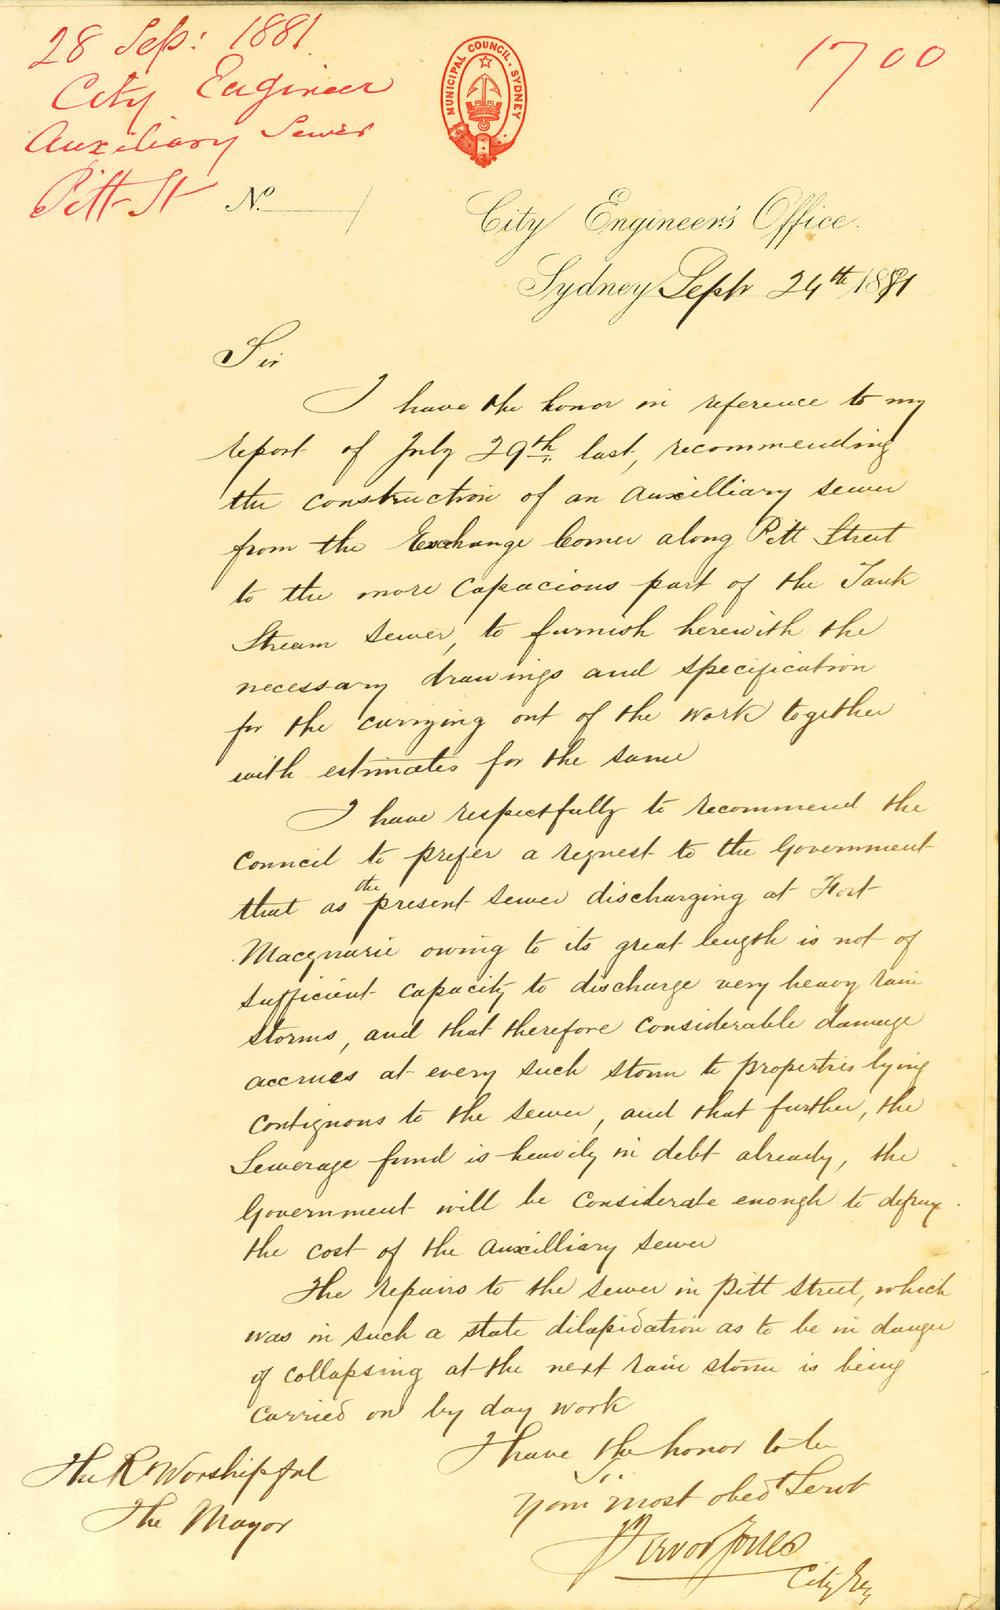 28 Sep: 1881
City Engineer
Auxiliary Sewer
Pitt St
1700
MUNICIPAL COUNCIL. SYDNEY
No.
City Engineer's Office.
Sydney Septr 24th 1881
Sir
I have the honor in reference to my
report of July 29th last, recommending
the construction of an auxilliary sewer
from the Exchange Corner along Pitt Street
to the more capacious part of the Tank
Stream Sewer, to furnish herewith the
necessary drawings and specification
for the carrying out of the work together
with estimates for the same
I have respectfully to recommend the
Council to prefer a request to the Government
that as the present sewer discharging at Fort
Macquarie owing to its great length is not of
sufficient capacity to discharge very heavy rain
storms, and that therefore considerable damage
accrues at every such storm to properties lying
contiguous to the sewer, and that further, the
Sewerage fund is heavily in debt already, the
Government will be considerate enough to defray
the cost of the auxilliary sewer
The repairs to the sewer in Pitt Street, which
was in such a state dilapidation as to be in danger
of collapsing at the next rain storm is being
carried on by day work
I have the honor to be
Sir
Your most obedt Servt
Trevor Jones
City Eng
The Rt Worshipful
The Mayor